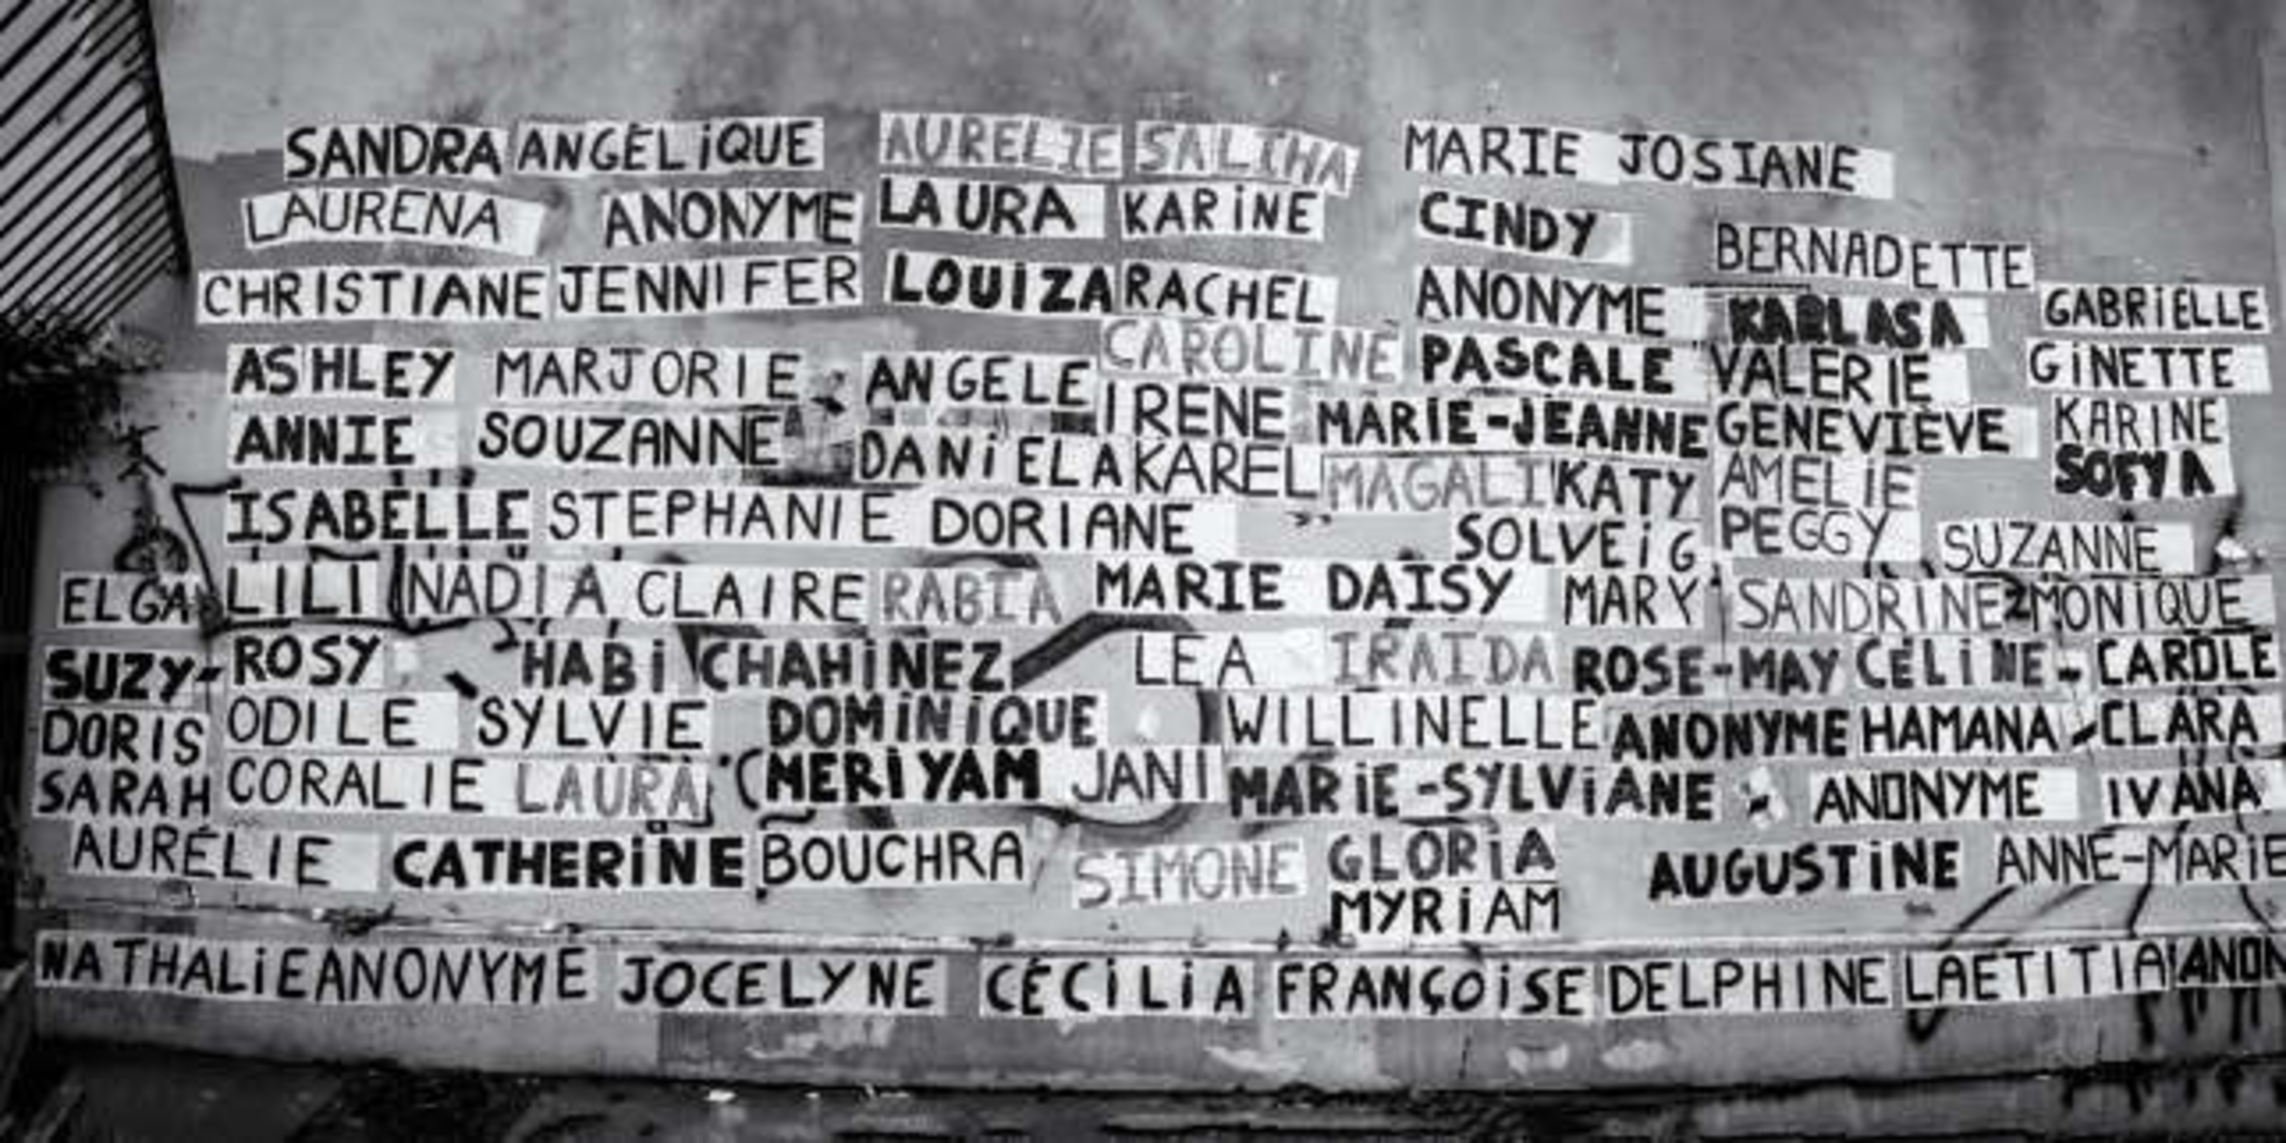 SANDRA ANGÉLiQUE AURELIE SALIHA MARIE JOSIANE
LAURENA ANONYME LAURA KARiNE CINDY BERNADETTE
CHRISTIANE JENNIFER LOUiZA RACHEL ANONYME KARLASA GABRiELLE
ASHLEY MARJORIE ANGELE CAROLINE PASCALE VALERIE GiNETTE
ANNIE SOUZANNE IRENE MARiE-JEANNE GENEVIÈVE KARINE
DANiELA KAREL MAGALI KATY AMELiE SOFYA
ISABELLE STEPHANIE DORIANE SOLVEiG PEGGY SUZANNE
ELGA LILI NADIA CLAIRE RABIA MARIE DAISY MARY SANDRINE MONiQUE
SUZY- ROSY HABi CHAHiNEZ LEA IRAIDA ROSE-MAY CÉLiNE - CAROLE
DORIS ODILE SYLVIE DOMiNiQUE WILLINELLE ANONYME HAMANA - CLARA
SARAH CORALIE LAURA MERiYAM JANI MARiE-SYLViANE - ANONYME IVANA
AURÉLIE CATHERiNE BOUCHRA SIMONE GLORiA AUGUSTiNE ANNE-MARiE
MYRiAM
NATHALiE ANONYME JOCELYNE CÉCiLiA FRANÇOiSE DELPHINE LAETITIA ANON